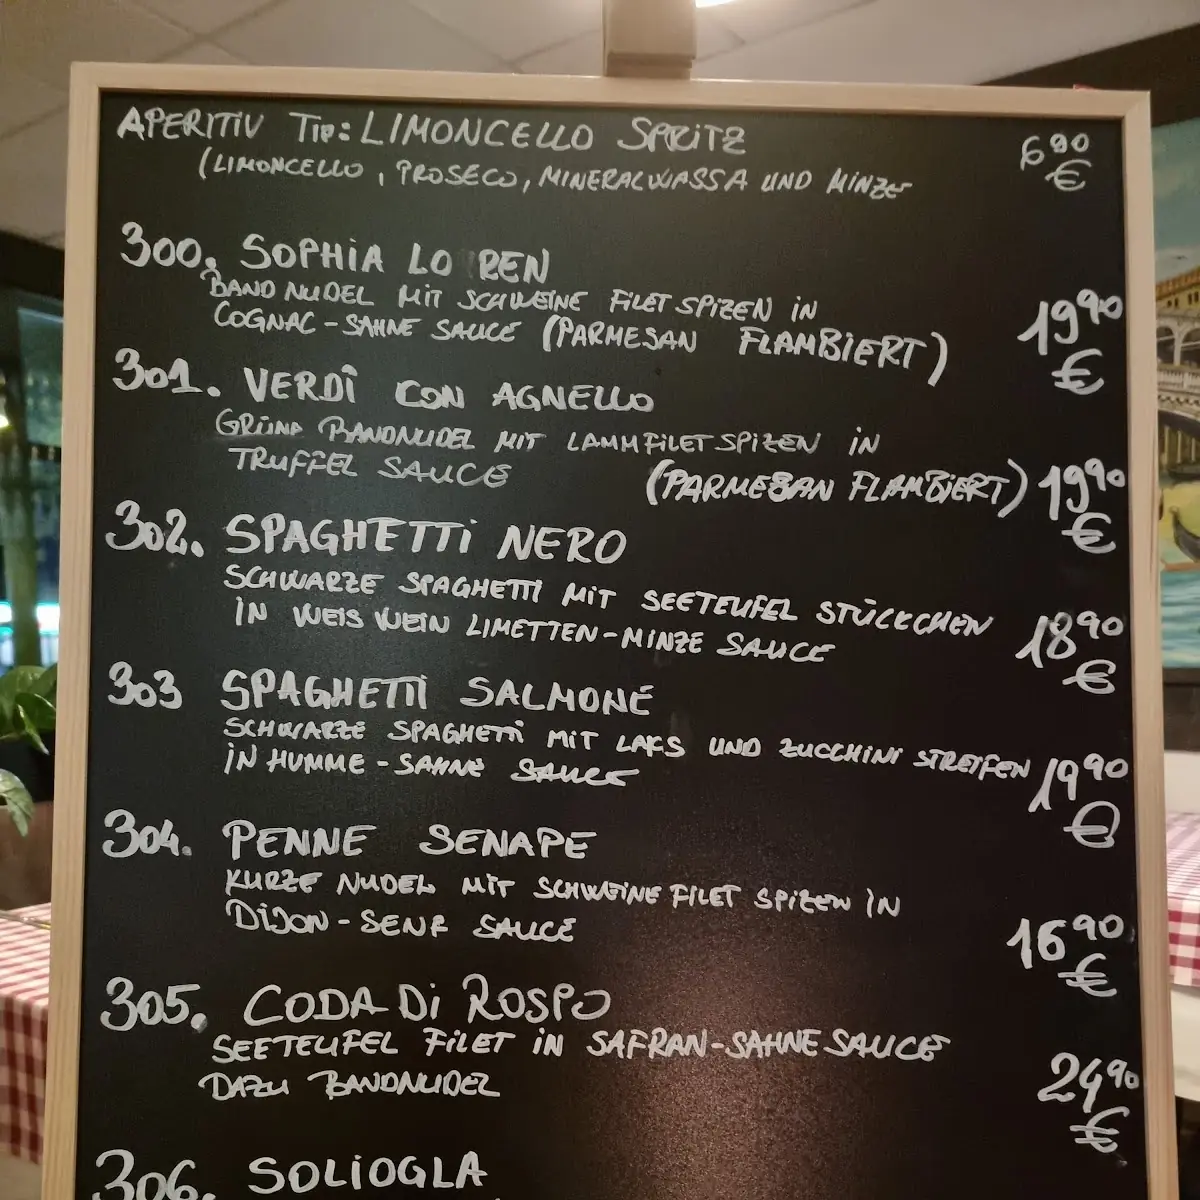 APERITIV TIP: LIMONCELLO SPRITZ 6 90 €
(LIMONCELLO, PROSECO, MINERALWASSA UND MINZE
300. SOPHIA LO REN
BAND NUDEL MIT SCHWEINE FILET SPIZEN IN
COGNAC-SAHNE SAUCE (PARMESAN FLAMBIERT) 19 90 €
301. VERDÎ CON AGNELLO
GRÜNE BANDNUDEL MIT LAMMFILET SPIZEN IN
TRUFFEL SAUCE (PARMESAN FLAMBIERT) 19 90 €
302. SPAGHETTI NERO
SCHWARZE SPAGHETTI MIT SEETEUFEL STÜCKCHEN
IN WEIS WEIN LIMETTEN-MINZE SAUCE 18 90 €
303 SPAGHETTI SALMONE
SCHWARZE SPAGHETTI MIT LAKS UND ZUCCHINI STREIFEN
IN HUMME-SAHNE SAUCE 19 90 €
304. PENNE SENAPE
KURZE NUDEL MIT SCHWEINE FILET SPIZEN IN
DIJON-SENF SAUCE 16 90 €
305. CODA DI ROSPO
SEETEUFEL FILET IN SAFRAN-SAHNE SAUCE
DAZU BANDNUDEL 24 90 €
306. SOLIOGLA